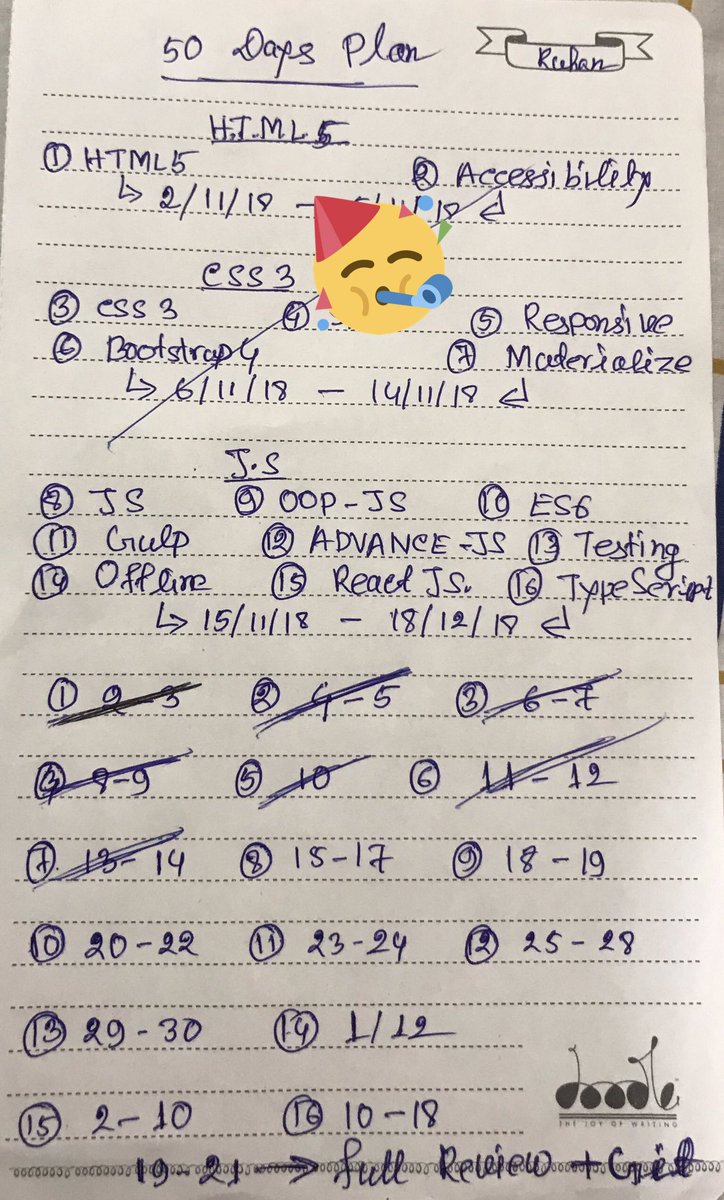 50 Days Plan
Ruhan
H.T.M.L 5
① HTML5 ② Accessibility
↳ 2/11/18 — /18 ↲
CSS 3
③ CSS 3 ④ ⑤ Responsive
⑥ Bootstrap 4 ⑦ Materialize
↳ 6/11/18 — 14/11/18 ↲
J.S
⑧ JS ⑨ OOP-JS ⑩ ES6
⑪ Gulp ⑫ ADVANCE-JS ⑬ Testing
⑭ Offline ⑮ React JS. ⑯ TypeScript
↳ 15/11/18 — 18/12/18 ↲
① 2-3 ② 4-5 ③ 6-7
④ 8-9 ⑤ 10 ⑥ 11-12
⑦ 13-14 ⑧ 15-17 ⑨ 18-19
⑩ 20-22 ⑪ 23-24 ⑫ 25-28
⑬ 29-30 ⑭ 1/12
⑮ 2-10 ⑯ 10-18
doodle
THE JOY OF WRITING
19-21 → full Review + Git